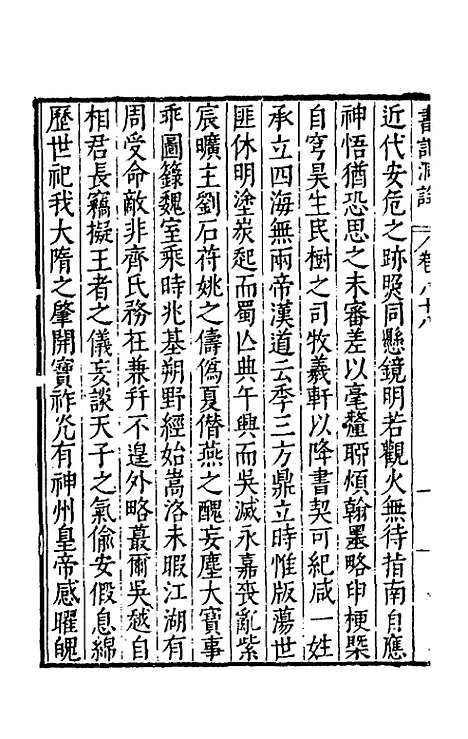 書記洞詮 卷八十八
近代安危之跡照同懸鏡明若觀火無待指南自應
神悟猶恐思之未審差以毫釐聊煩翰墨略申梗槩
自穹昊生民樹之司牧羲軒以降書契可紀咸一姓
承立四海無兩帝漢道云季三方鼎立時惟版蕩世
匪休明塗炭起而蜀亾典午興而吳滅永嘉喪亂紫
宸曠主劉石苻姚之儔僞夏僭燕之醜妄塵大寶事
乖圖錄魏室乘時兆基朔野經始嵩洛未暇江湖有
周受命敵非齊氏務在兼幷不遑外略蕞爾吳越自
相君長竊擬王者之儀妄談天子之氣偷安假息綿
歷世祀我大隋之肇開寶祚光有神州皇帝感曜魄